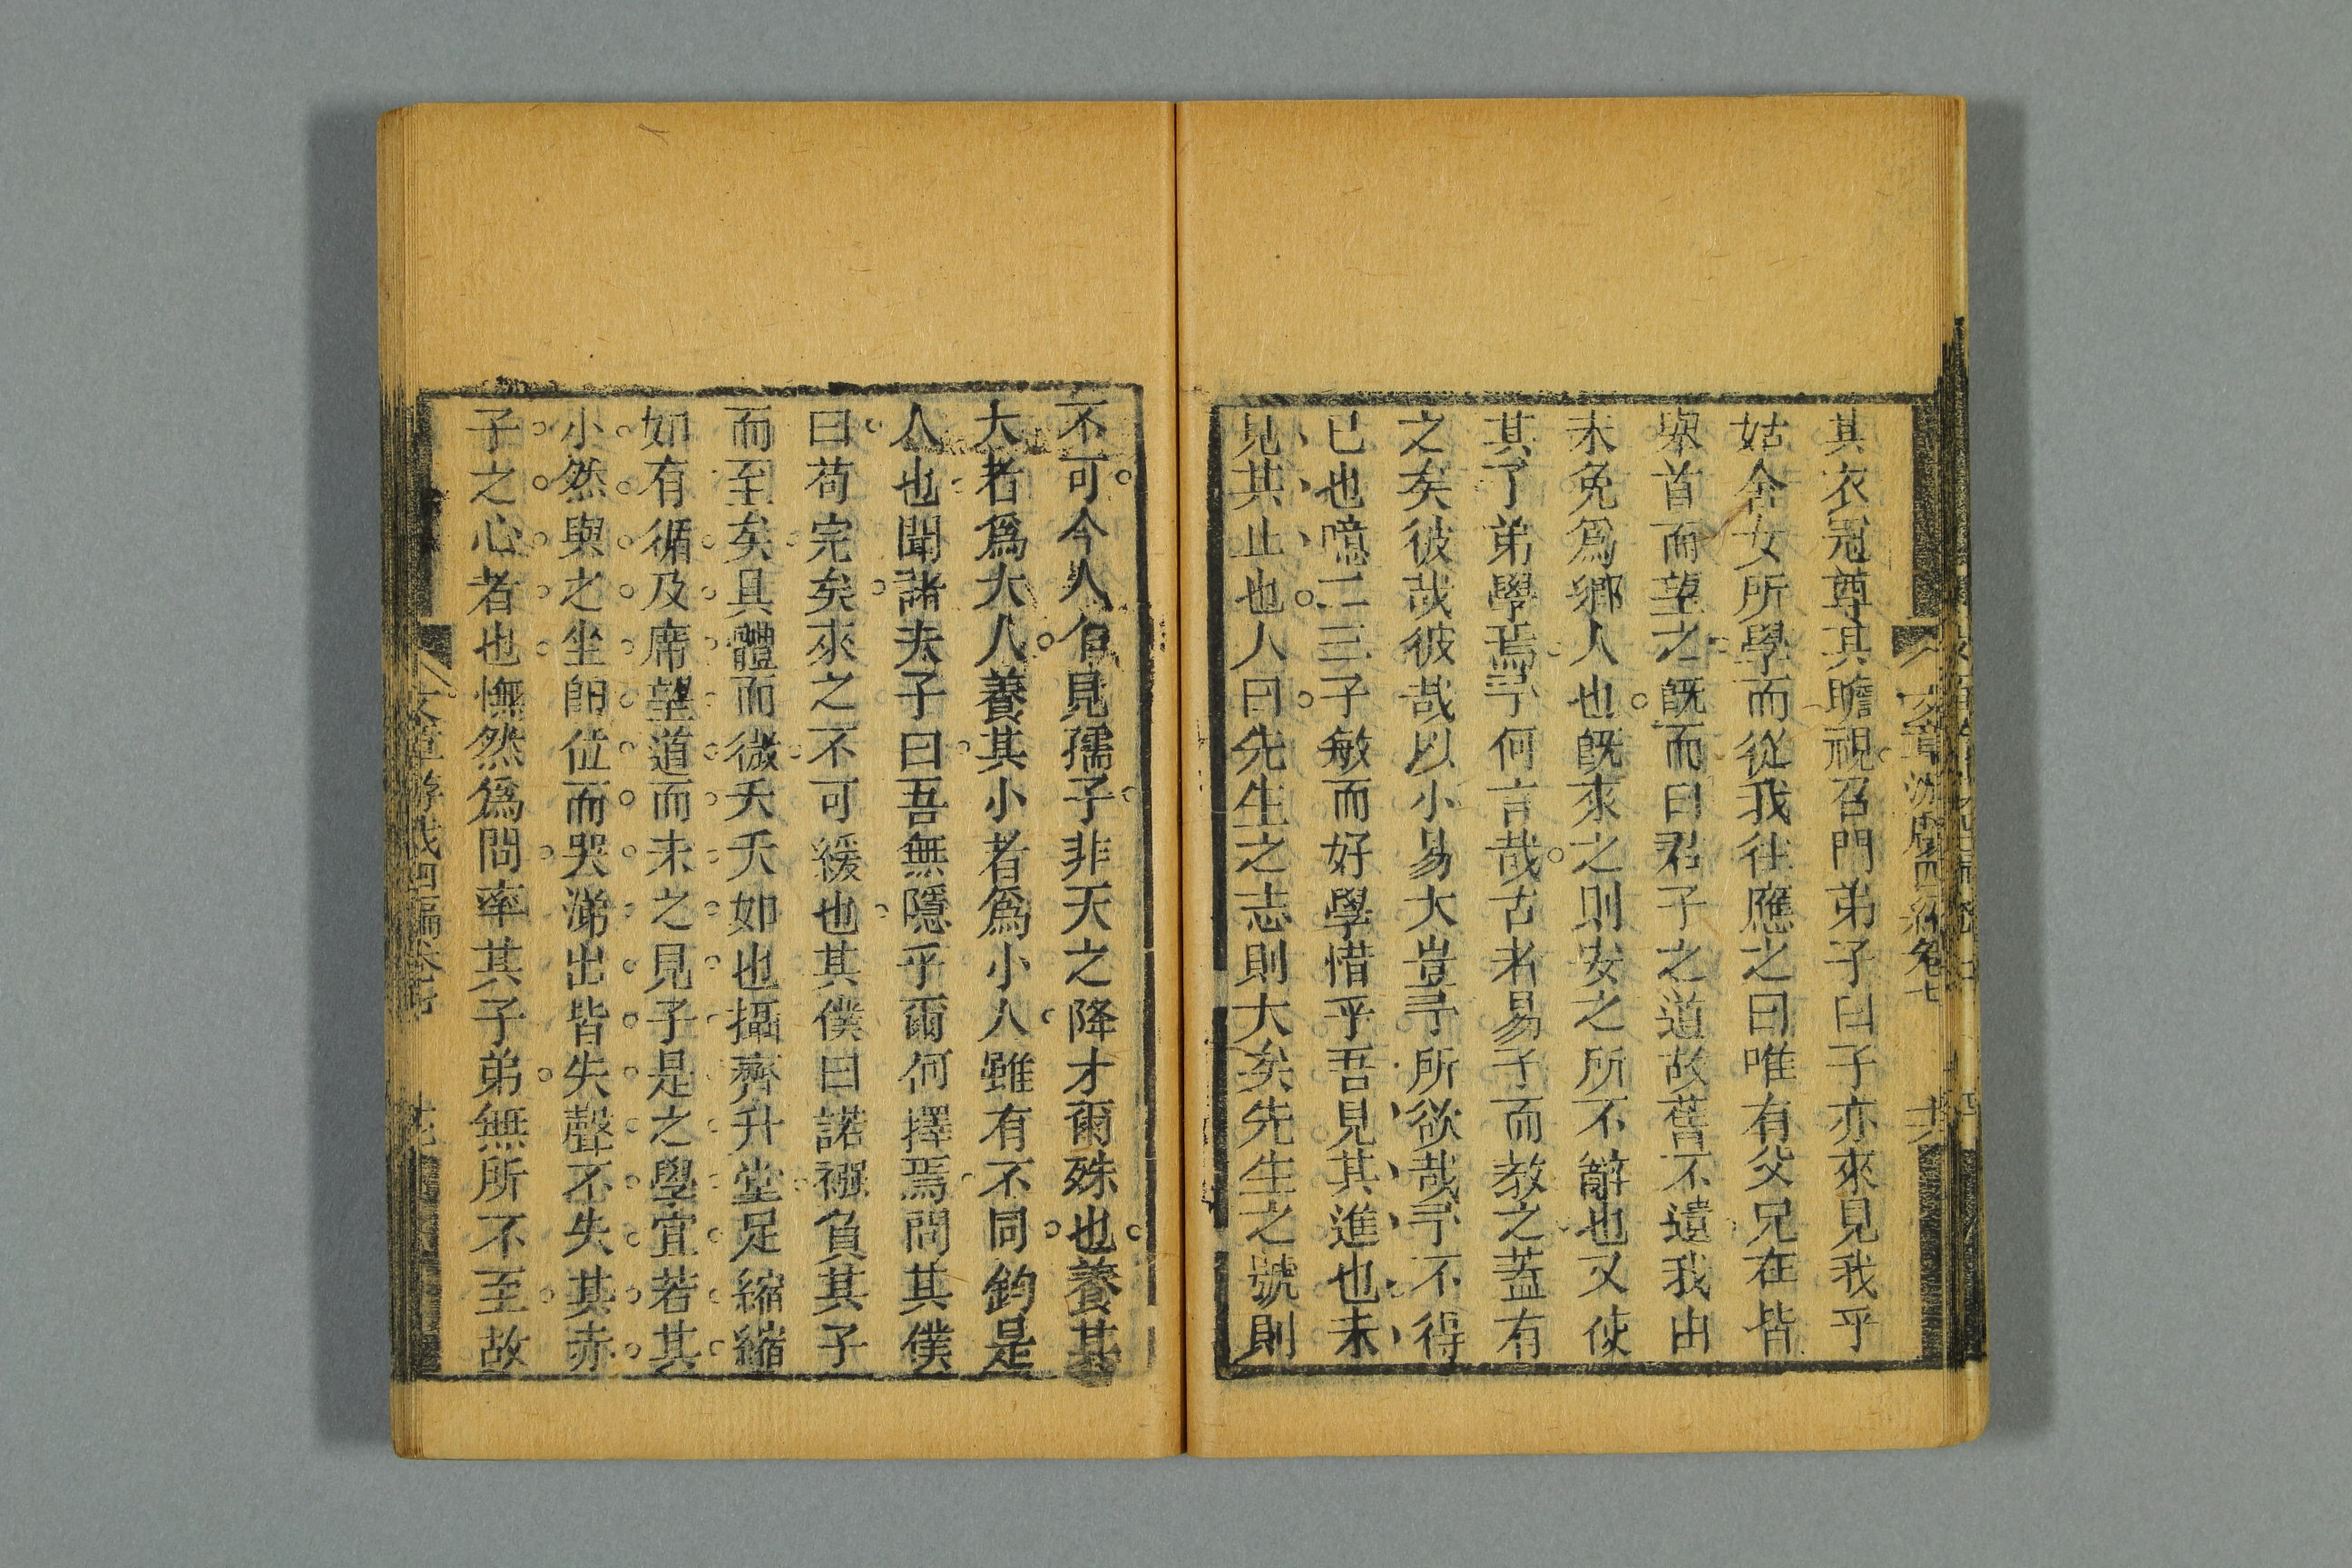 其衣冠尊其瞻視召門弟子曰子亦來見我乎
姑舍女所學而從我往應之曰唯有父兄在皆
舉首而望之既而曰君子之道故舊不遺我由
未免爲鄉人也既來之則安之所不辭也又使
其子弟學焉予何言哉古者易子而教之蓋有
之矣彼哉彼哉以小易大豈予所欲哉予不得
已也噫二三子敏而好學惜乎吾見其進也未
見其止也人曰先生之志則大矣先生之號則
不可今人乍見孺子非天之降才爾殊也養其
大者爲大人養其小者爲小人雖有不同鈞是
人也聞諸夫子曰吾無隱乎爾何擇焉問其僕
曰苟完矣來之不可緩也其僕曰諾襁負其子
而至矣具體而微夭夭如也攝齊升堂足縮縮
如有循及席望道而未之見子是之學宜若其
小然與之坐即位而哭涕出皆失聲不失其赤
子之心者也憮然爲問率其子弟無所不至故
文章游戲四編卷七